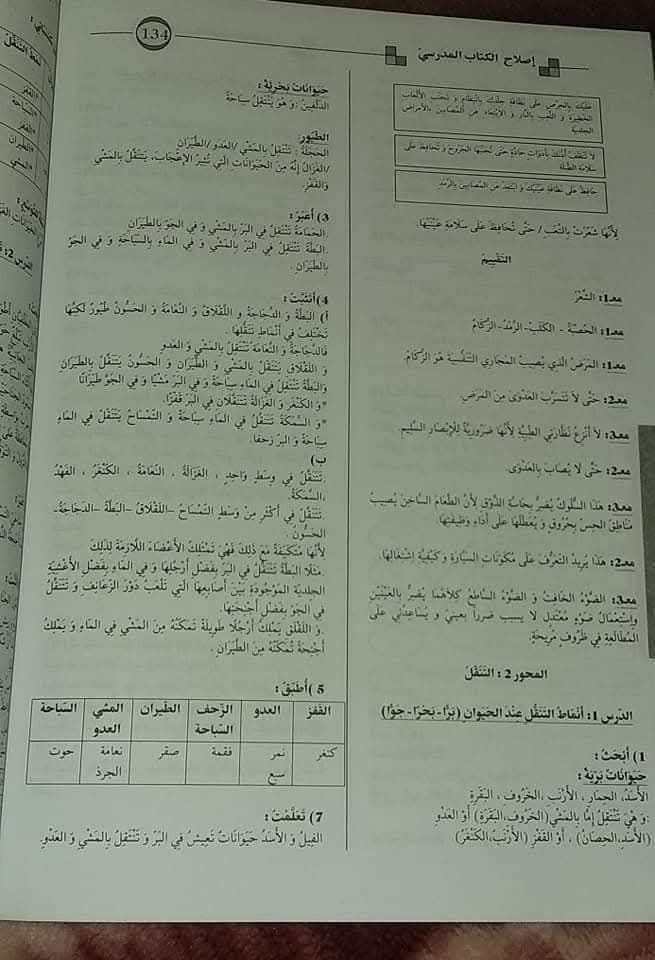 134
إصلاح الكتاب المدرسيّ
عَلَيْكَ بِالحِرْصِ عَلَى نَظَافَةِ جِلْدِكَ بِانْتِظَامٍ وَ تَجَنُّبِ الأَلْعَابِ
الخَطِيرَةِ وَ اللَّعِبِ بِالنَّارِ وَ الابْتِعَادِ عَنِ المُصَابِينَ بِالأَمْرَاضِ
الجِلْدِيَّةِ
لاَ تُنَظِّفْ أُذُنَكَ بِأَدَوَاتٍ حَادَّةٍ حَتَّى تُجَنِّبَهَا الجُرُوحَ وَ تُحَافِظَ عَلَى
سَلاَمَةِ الطَّبْلَةِ
حَافِظْ عَلَى نَظَافَةِ عَيْنَيْكَ وَ ابْتَعِدْ عَنِ المُصَابِينَ بِالرَّمَدِ
لِأَنَّهَا شَعُرَتْ بِالتَّعَبِ / حَتَّى تُحَافِظَ عَلَى سَلاَمَةِ عَيْنَيْهَا.
التقييم
معـ1: الشَّعْرُ
معـ1: الحَصْبَةُ - الكَلَبُ- الرَّمَدُ- الزُّكَامُ
معـ1: المَرَضُ الَّذِي يُصِيبُ المَجَارِي التَّنَفُّسِيَّةَ هُوَ الزُّكَامُ.
معـ2: حَتَّى لاَ تَتَسَرَّبَ العَدْوَى مِنَ المَرَضِ.
معـ3: لاَ أَنْزِعُ نَظَّارَتِي الطِّبِيَّةَ لِأَنَّهَا ضَرُورِيَّةٌ لِلْإِبْصَارِ السَّلِيمِ.
معـ2: حَتَّى لاَ يُصَابَ بِالعَدْوَى.
معـ3: هَذَا السُّلُوكُ يُضِرُّ بِحَاسَّةِ الذَّوْقِ لِأَنَّ الطَّعَامَ السَّاخِنَ يُصِيبُ
مَنَاطِقَ الحِسِّ بِحُرُوقٍ وَ يُعَطِّلُهَا عَلَى أَدَاءِ وَظِيفَتِهَا.
معـ2: هَذَا يُرِيدُ التَّعَرُّفَ عَلَى مُكَوِّنَاتِ السَّيَّارَةِ وَ كَيْفِيَّةِ اشْتِغَالِهَا.
معـ3: الضَّوْءُ الخَافِتُ وَ الضَّوْءُ السَّاطِعُ كِلاَهُمَا يُضِرُّ بِالعَيْنَيْنِ
وَاسْتِعْمَالُ ضَوْءٍ مُعْتَدِلٍ لا يسبب ضررا بعيني وَ يُسَاعِدُنِي عَلَى
المُطَالَعَةِ فِي ظُرُوفٍ مُرِيحَةٍ.
المحور 2 : التَّنَقُّلُ
الدّرس 1: أَنْمَاطُ التَّنَقُّلِ عِنْدَ الحَيَوانِ (بَرًّا- بَحْرًا- جَوًّا)
1) أَبْحَثُ :
حَيوَانَاتٌ بَرِّيَّةٌ :
الأَسَدُ، الحِمَارُ ، الأَرْنَبُ ،الخَرُوفُ ، البَقَرَةُ
:وَ هْيَ تَنْتَقِلُ إِمَّا بِالمَشْيِ(الخَرُوفُ، البَقَرَةُ) أَوْ العَدْوُ
(الأَسَدُ،الحِصَانُ) ، أَوْ القَفْزِ (الأَرْنَبُ،الكَنْغَرُ)
حَيوَانَاتٌ بَحْرِيَّةٌ :
الدُّلْفِينُ : وَ هْوَ يَنْتَقِلُ سِبَاحَةً
الطّيُور:
الحَجَلَةُ : تَنْتَقِلُ بِالمَشْيِ /العَدْوِ /الطَّيَرَانِ
/الغَزَالُ إِنَّهُ مِنَ الحَيَوَانَاتِ الَّتِي تُثِيرُ الإِعْجَابَ، يَتَنَقَّلُ بِالمَشْيِ
وَالقَفْزِ.
3) أُعَبِّرُ :
.الحَمَامَةُ تَتَنَقَّلُ فِي البَرِّ بِالمَشْيِ وَ فِي الجَوِّ بِالطَّيَرَانِ
.البَطَّةُ تَتَنَقَّلُ فِي البَرِّ بِالمَشْيِ وَ فِي المَاءِ بِالسِّبَاحَةِ وَ فِي الجَوِّ
بِالطَّيَرَانِ .
4) أَتَثَبَّتُ :
أ) البَطَّةُ وَ الدَّجَاجَةُ وَ اللَّقْلاَقُ وَ النَّعَامَةُ وَ الحَسُّونُ طُيُورٌ لَكِنَّهَا
تَخْتَلِفُ فِي أَنْمَاطِ تَنَقُّلِهَا .
فَالدَّجَاجَةُ وَ النَّعَامَةُ تَتَنَقَّلُ بِالمَشْيِ وَ العَدْوِ
وَ اللَّقْلاَقُ يَتَنَقَّلُ بِالمَشْيِ وَ الطَّيَرَانِ وَ الحَسُّونُ يَتَنَقَّلُ بِالطَّيَرَانِ
وَالبَطَّةُ تَتَنَقَّلُ فِي المَاءِ سِبَاحَةً وَ فِي البَرِّ مَشْيًا وَ فِي الجَوِّ طَيَرَانًا
*وَ الكَنْغَرُ وَ الغَزَالَةُ تَتَنَقَّلاَنِ فِي البَرِّ قَفْزًا.
*وَ السَّمَكَةُ تَتَنَقَّلُ فِي المَاءِ سِبَاحَةً وَ التِّمْسَاحُ يَتَنَقَّلُ فِي المَاءِ
سِبَاحَةً وَ البَرِّ زَحفًا.
ب)
.تَتَنَقَّلُ فِي وَسَطٍ وَاحِدٍ ، الغَزَالَةُ ، النَّعَامَةُ ، الكَنْغَرُ ، الفَهْدُ
،السَّمَكَةُ.
.تَتَنَقَّلُ فِي أَكْثَرَ مِنْ وَسَطٍ التِّمْسَاحُ –اللَّقْلاَقُ –البَطَّةُ –الدَّجَاجَةُ-
الحَسُّونُ.
لِأَنَّهَا مُتَكَيِّفَةٌ مَعَ ذَلِكَ فَهِيَ تَمْتَلِكُ الأَعْضَاءَ اللاَّزِمَةَ لِذَلِكَ
.مَثَلًا البَطَّةُ تَتَنَقَّلُ فِي البَرِّ بِفَضْلِ أَرْجُلِهَا وَ فِي المَاءِ بِفَضْلِ الأَغْشِيَةِ
الجِلْدِيَةِ المَوْجُودَةِ بَيْنَ أَصَابِعِهَا الَّتِي تَلْعَبُ دَوْرَ الزَّعَانِفِ وَ تَتَنَقَّلُ
فِي الجَوِّ بِفَضْلِ أَجْنِحَتِهَا.
.وَ اللَّقْلَقُ يَمْلِكُ أَرْجُلًا طَوِيلَةً تُمَكِّنُهُ مِنَ المَشْيِ فِي المَاءِ وَ يَمْلِكُ
أَجْنِحَةً تُمَكِّنُهُ مِنَ الطَّيَرَانِ .
5) أُطَبِّقُ :
القَفْزُ | العدو | الزّحف السّباحة | الطّيران | المشي العدو | السّباحة
كنغر | نمر سبع | فقمة | صقر | نعامة الجرذ | حوت
7) تَعَلَّمْتُ :
الفِيلُ وَ الأَسَدُ حَيَوَانَاتٌ تَعِيشُ فِي البَرِّ وَ تَنْتَقِلُ بِالمَشْيِ وَ العَدْوِ.